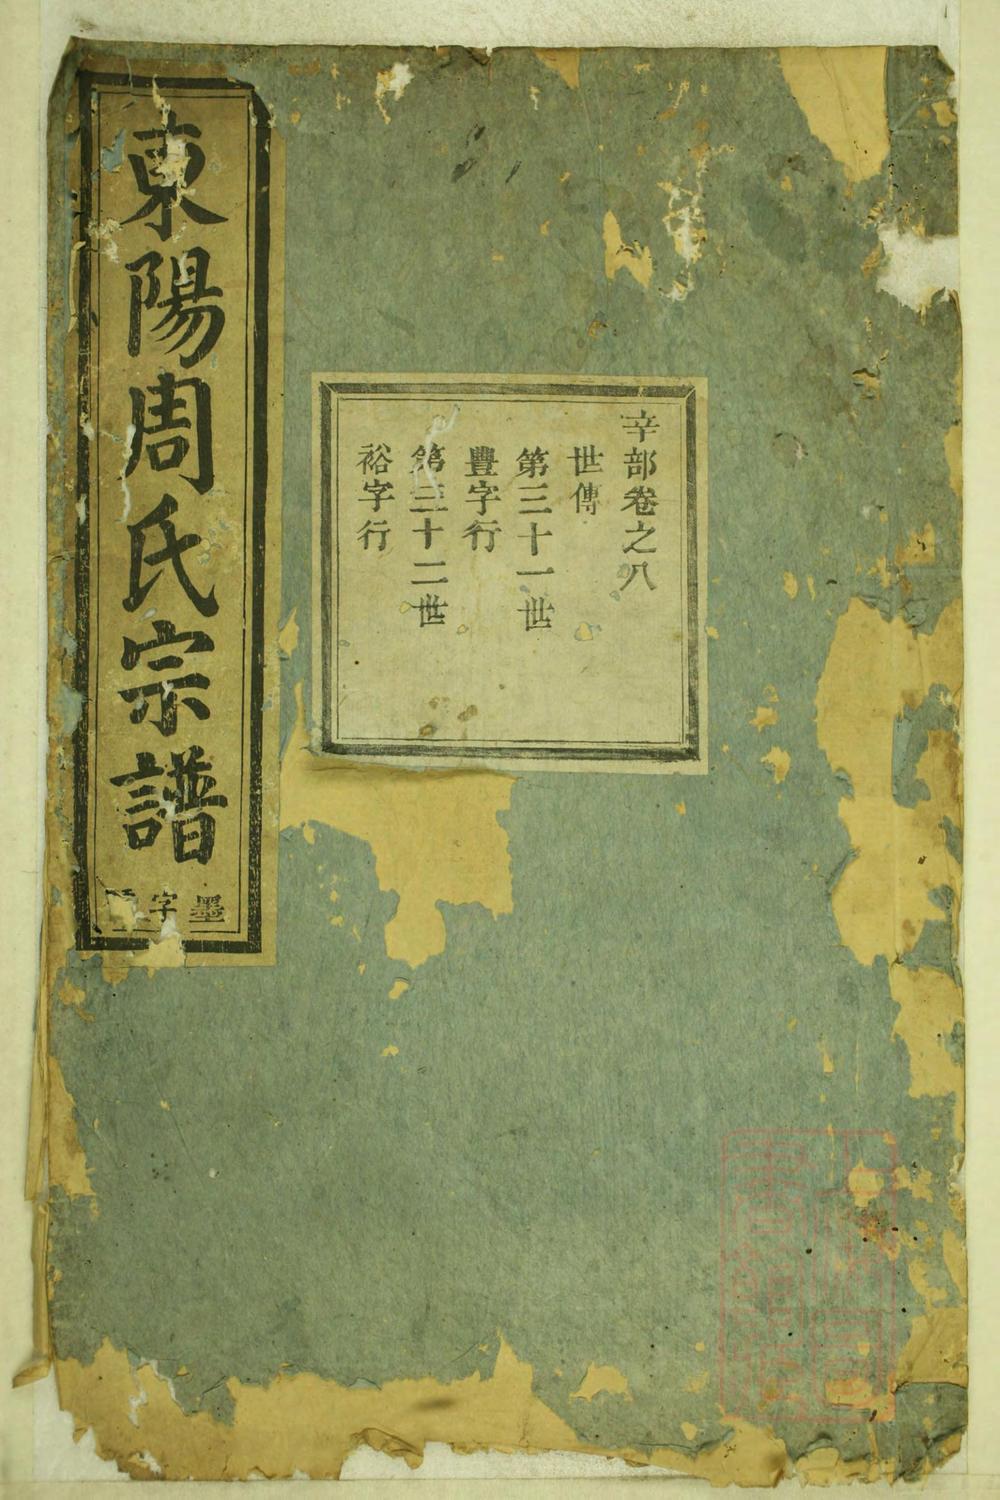 東陽周氏宗譜
墨字
辛部卷之八
世傳
第三十一世
豐字行
第三十二世
裕字行